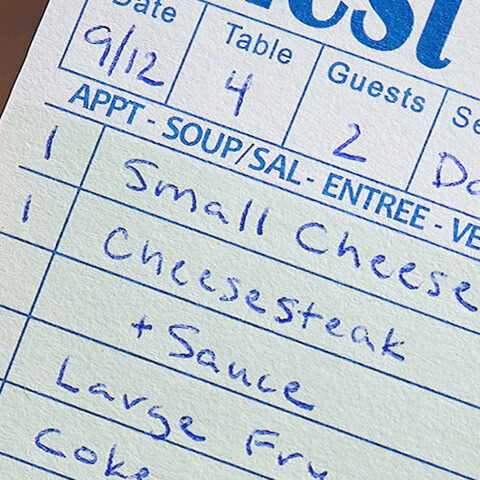 Date Table Guests
9/12 4 2
APPT - SOUP/SAL - ENTREE -
1 Small Cheese
1 Cheesesteak
+ Sauce
Large Fry
Coke